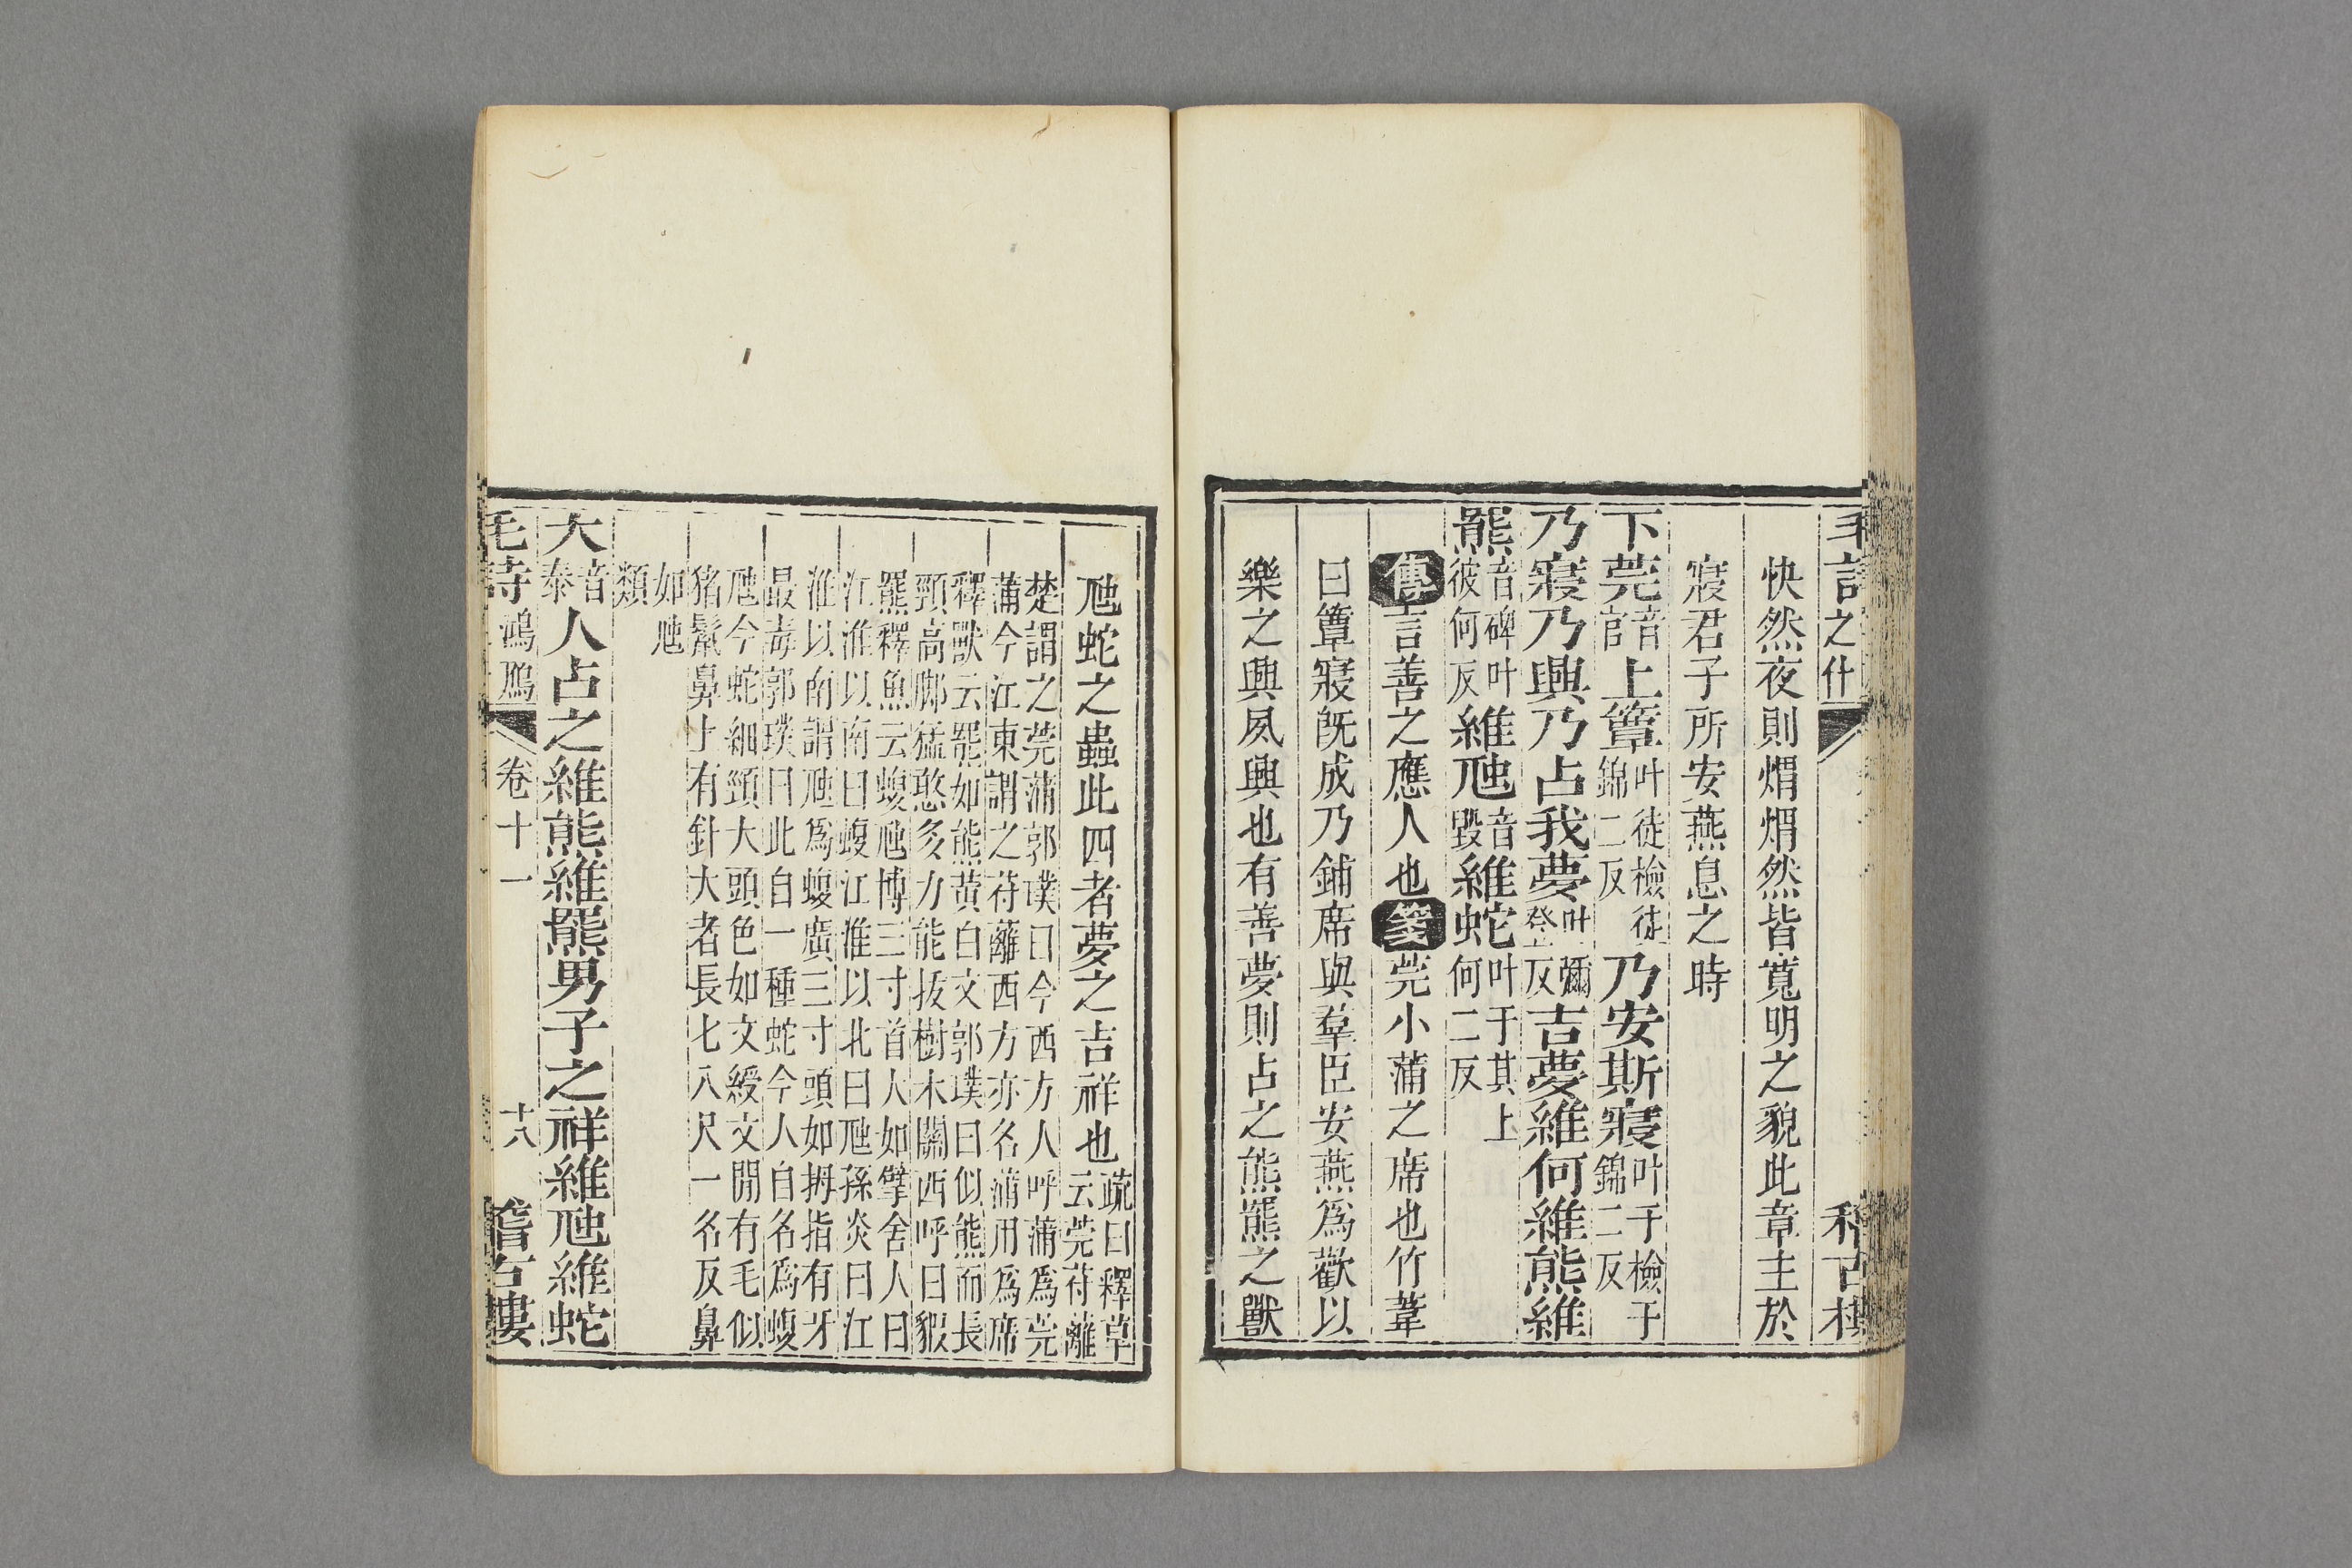 毛詩之什
快然夜則煟煟然皆寬明之貌此章主於
寢君子所安燕息之時
下莞音官上簟叶徒檢徒錦二反乃安斯寢叶于檢于錦二反
乃寢乃興乃占我夢叶彌登反吉夢維何維熊維
羆音碑叶彼何反維虺音毀維蛇叶于其上何二反
傳言善之應人也箋莞小蒲之席也竹葦
曰簟寢旣成乃鋪席與羣臣安燕爲歡以
樂之興夙興也有善夢則占之熊羆之獸
虺蛇之蟲此四者夢之吉祥也疏曰釋草云莞苻蘺
楚謂之莞蒲郭璞曰今西方人呼蒲爲莞
蒲今江東謂之苻蘺西方亦名蒲用爲席
釋獸云羆如熊黃白文郭璞曰似熊而長
頸高脚猛憨多力能拔樹木關西呼曰貑
羆釋魚云蝮虺博三寸首大如擘舍人曰
江淮以南曰蝮江淮以北曰虺孫炎曰江
淮以南謂虺爲蝮廣三寸頭如拇指有牙
最毒郭璞曰此自一種蛇今人自名爲蝮
虺今蛇細頸大頭色如文綬文閒有毛似
猪鬛鼻上有針大者長七八尺一名反鼻
如虺
類
大音泰人占之維熊維羆男子之祥維虺維蛇
毛詩 鴻鴈 卷十一 十八 稽古樓